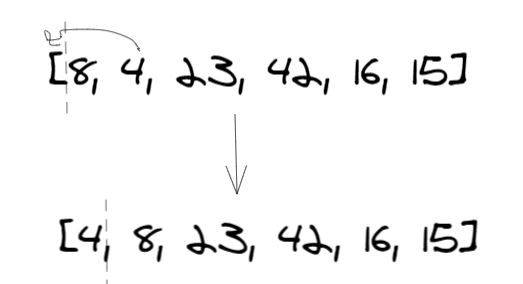 [8, 4, 23, 42, 16, 15]
[4, 8, 23, 42, 16, 15]